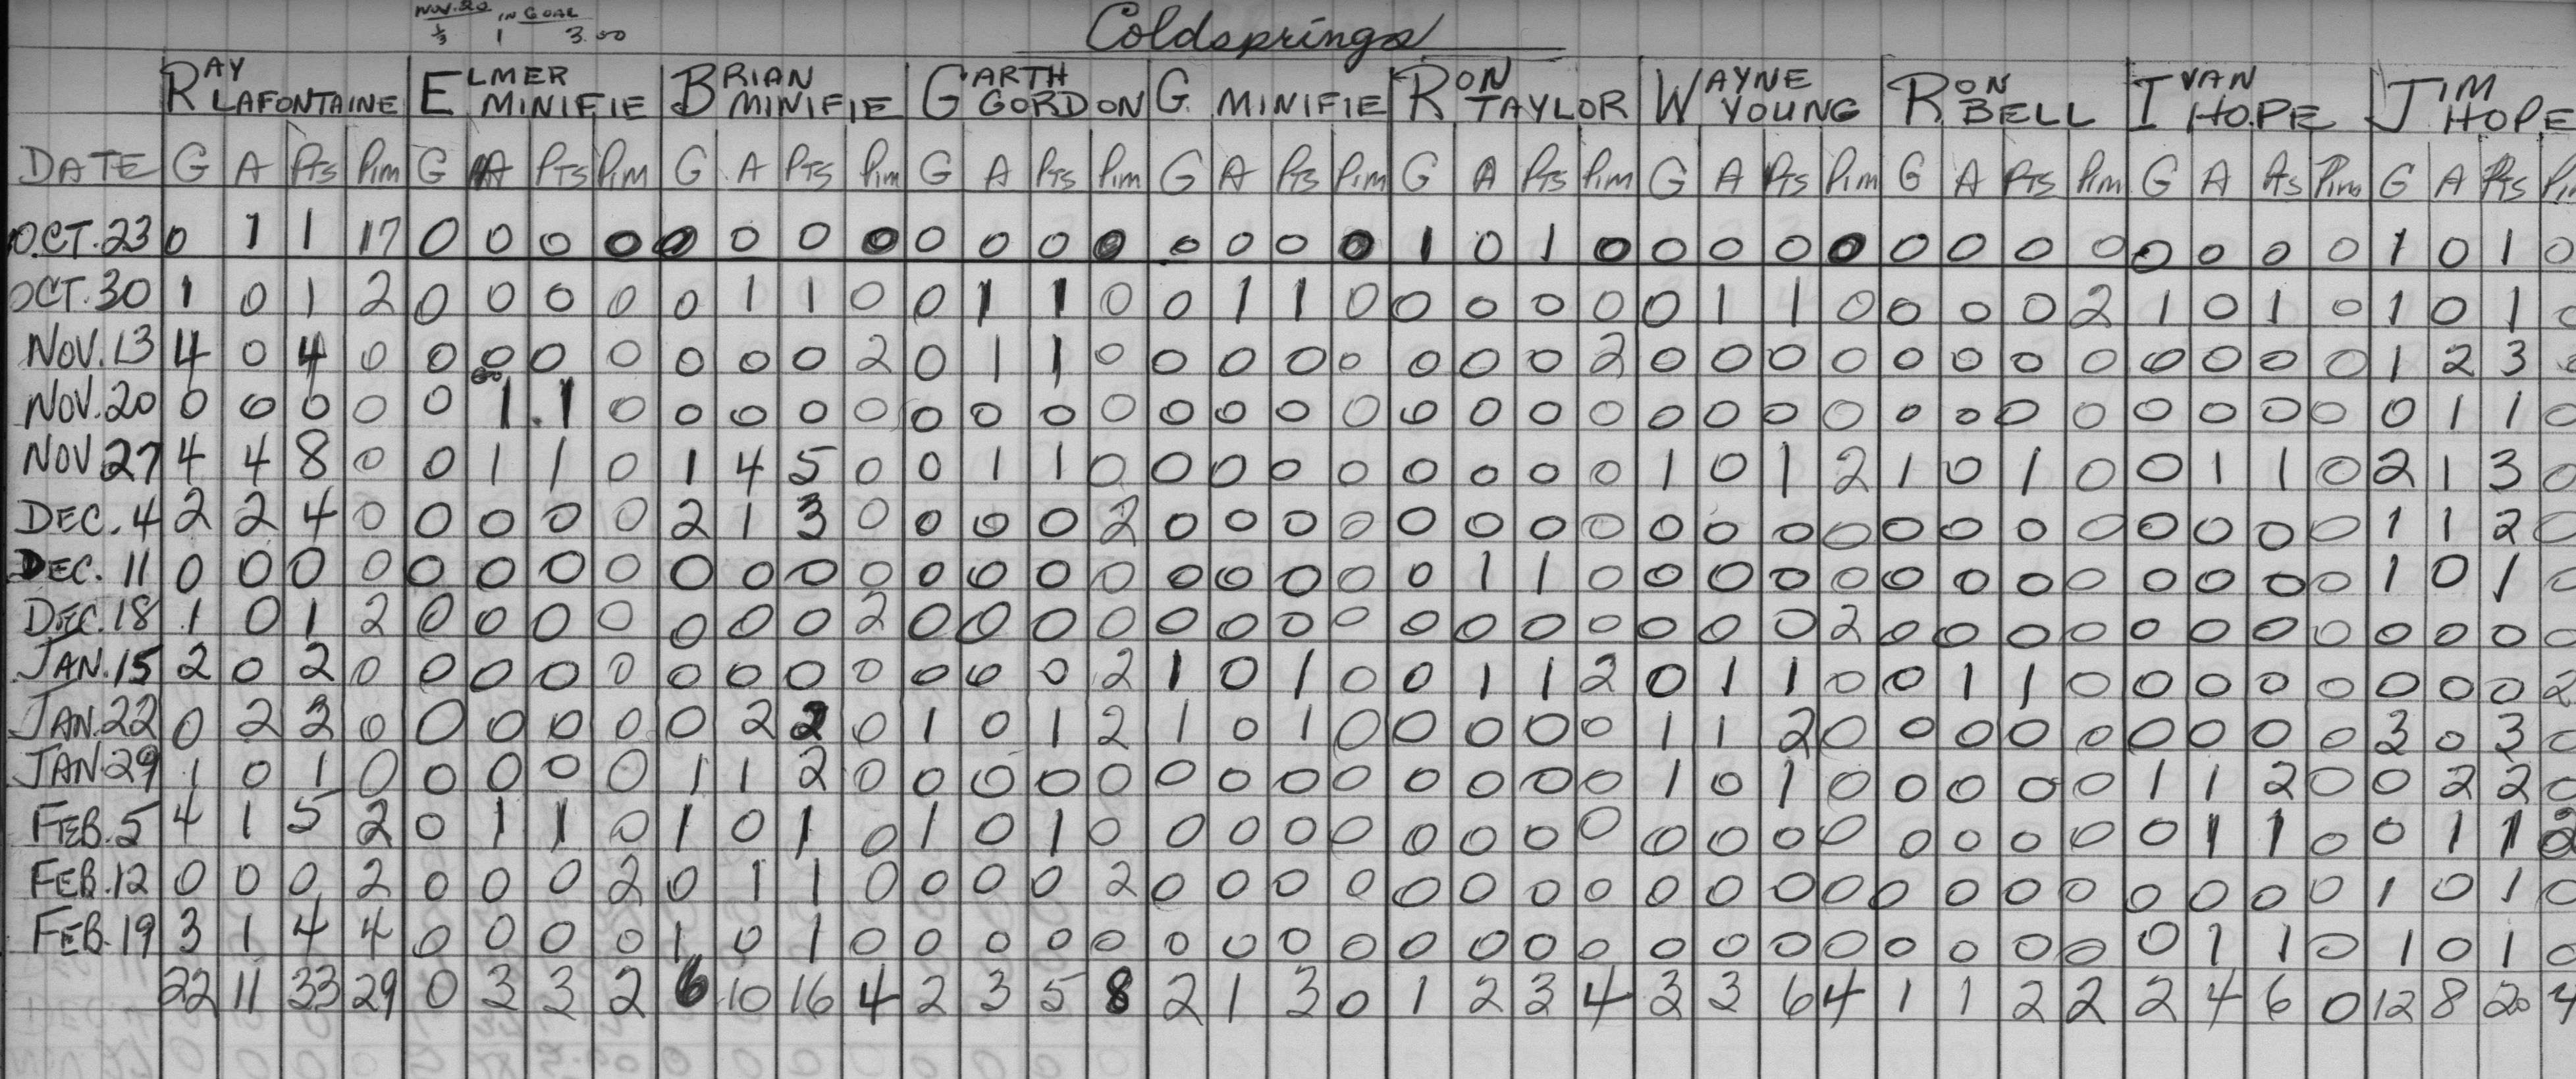 NOV. 20 IN GOAL
1/3 1 3.00
Coldsprings
RAY LAFONTAINE ELMER MINIFIE BRIAN MINIFIE GARTH GORDON G. MINIFIE RON TAYLOR WAYNE YOUNG RON BELL IVAN HOPE JIM HOPE
DATE G A PTS PIM G A PTS PIM G A PTS PIM G A PTS PIM G A PTS PIM G A PTS PIM G A PTS PIM G A PTS PIM G A PTS PIM G A PTS
OCT. 23 0 1 1 17 0 0 0 0 0 0 0 0 0 0 0 0 0 0 0 0 1 0 1 0 0 0 0 0 0 0 0 0 0 0 0 0 1 0 1 0
OCT. 30 1 0 1 2 0 0 0 0 0 1 1 0 0 1 1 0 0 1 1 0 0 0 0 0 0 1 1 0 0 0 0 2 1 0 1 0 1 0 1 0
NOV. 13 4 0 4 0 0 0 0 0 0 0 0 2 0 1 1 0 0 0 0 0 0 0 0 2 0 0 0 0 0 0 0 0 0 0 0 0 1 2 3
NOV. 20 0 0 0 0 0 1 1 0 0 0 0 0 0 0 0 0 0 0 0 0 0 0 0 0 0 0 0 0 0 0 0 0 0 0 0 0 0 1 1 0
NOV 27 4 4 8 0 0 1 1 0 1 4 5 0 0 1 1 0 0 0 0 0 0 0 0 0 1 0 1 2 1 0 1 0 0 1 1 0 2 1 3 0
DEC. 4 2 2 4 0 0 0 0 0 2 1 3 0 0 0 0 2 0 0 0 0 0 0 0 0 0 0 0 0 0 0 0 0 0 0 0 0 1 1 2 0
DEC. 11 0 0 0 0 0 0 0 0 0 0 0 0 0 0 0 0 0 0 0 0 0 1 1 0 0 0 0 0 0 0 0 0 0 0 0 0 1 0 1 0
DEC. 18 1 0 1 2 0 0 0 0 0 0 0 2 0 0 0 0 0 0 0 0 0 0 0 0 0 0 0 2 0 0 0 0 0 0 0 0 0 0 0 0
JAN. 15 2 0 2 0 0 0 0 0 0 0 0 0 0 0 0 2 1 0 1 0 0 1 1 2 0 1 1 0 0 1 1 0 0 0 0 0 0 0 0 2
JAN. 22 0 2 2 0 0 0 0 0 0 2 2 0 1 0 1 2 1 0 1 0 0 0 0 0 1 1 2 0 0 0 0 0 0 0 0 0 3 0 3 0
JAN. 29 1 0 1 0 0 0 0 0 1 1 2 0 0 0 0 0 0 0 0 0 0 0 0 0 1 0 1 0 0 0 0 0 1 1 2 0 0 2 2 0
FEB. 5 4 1 5 2 0 1 1 0 1 0 1 0 1 0 1 0 0 0 0 0 0 0 0 0 0 0 0 0 0 0 0 0 0 1 1 0 0 1 1 2
FEB. 12 0 0 0 2 0 0 0 2 0 1 1 0 0 0 0 2 0 0 0 0 0 0 0 0 0 0 0 0 0 0 0 0 0 0 0 0 1 0 1 0
FEB. 19 3 1 4 4 0 0 0 0 1 0 1 0 0 0 0 0 0 0 0 0 0 0 0 0 0 0 0 0 0 0 0 0 0 1 1 0 1 0 1 0
22 11 33 29 0 3 3 2 6 10 16 4 2 3 5 8 2 1 3 0 1 2 3 4 3 3 6 4 1 1 2 2 2 4 6 0 12 8 20 4